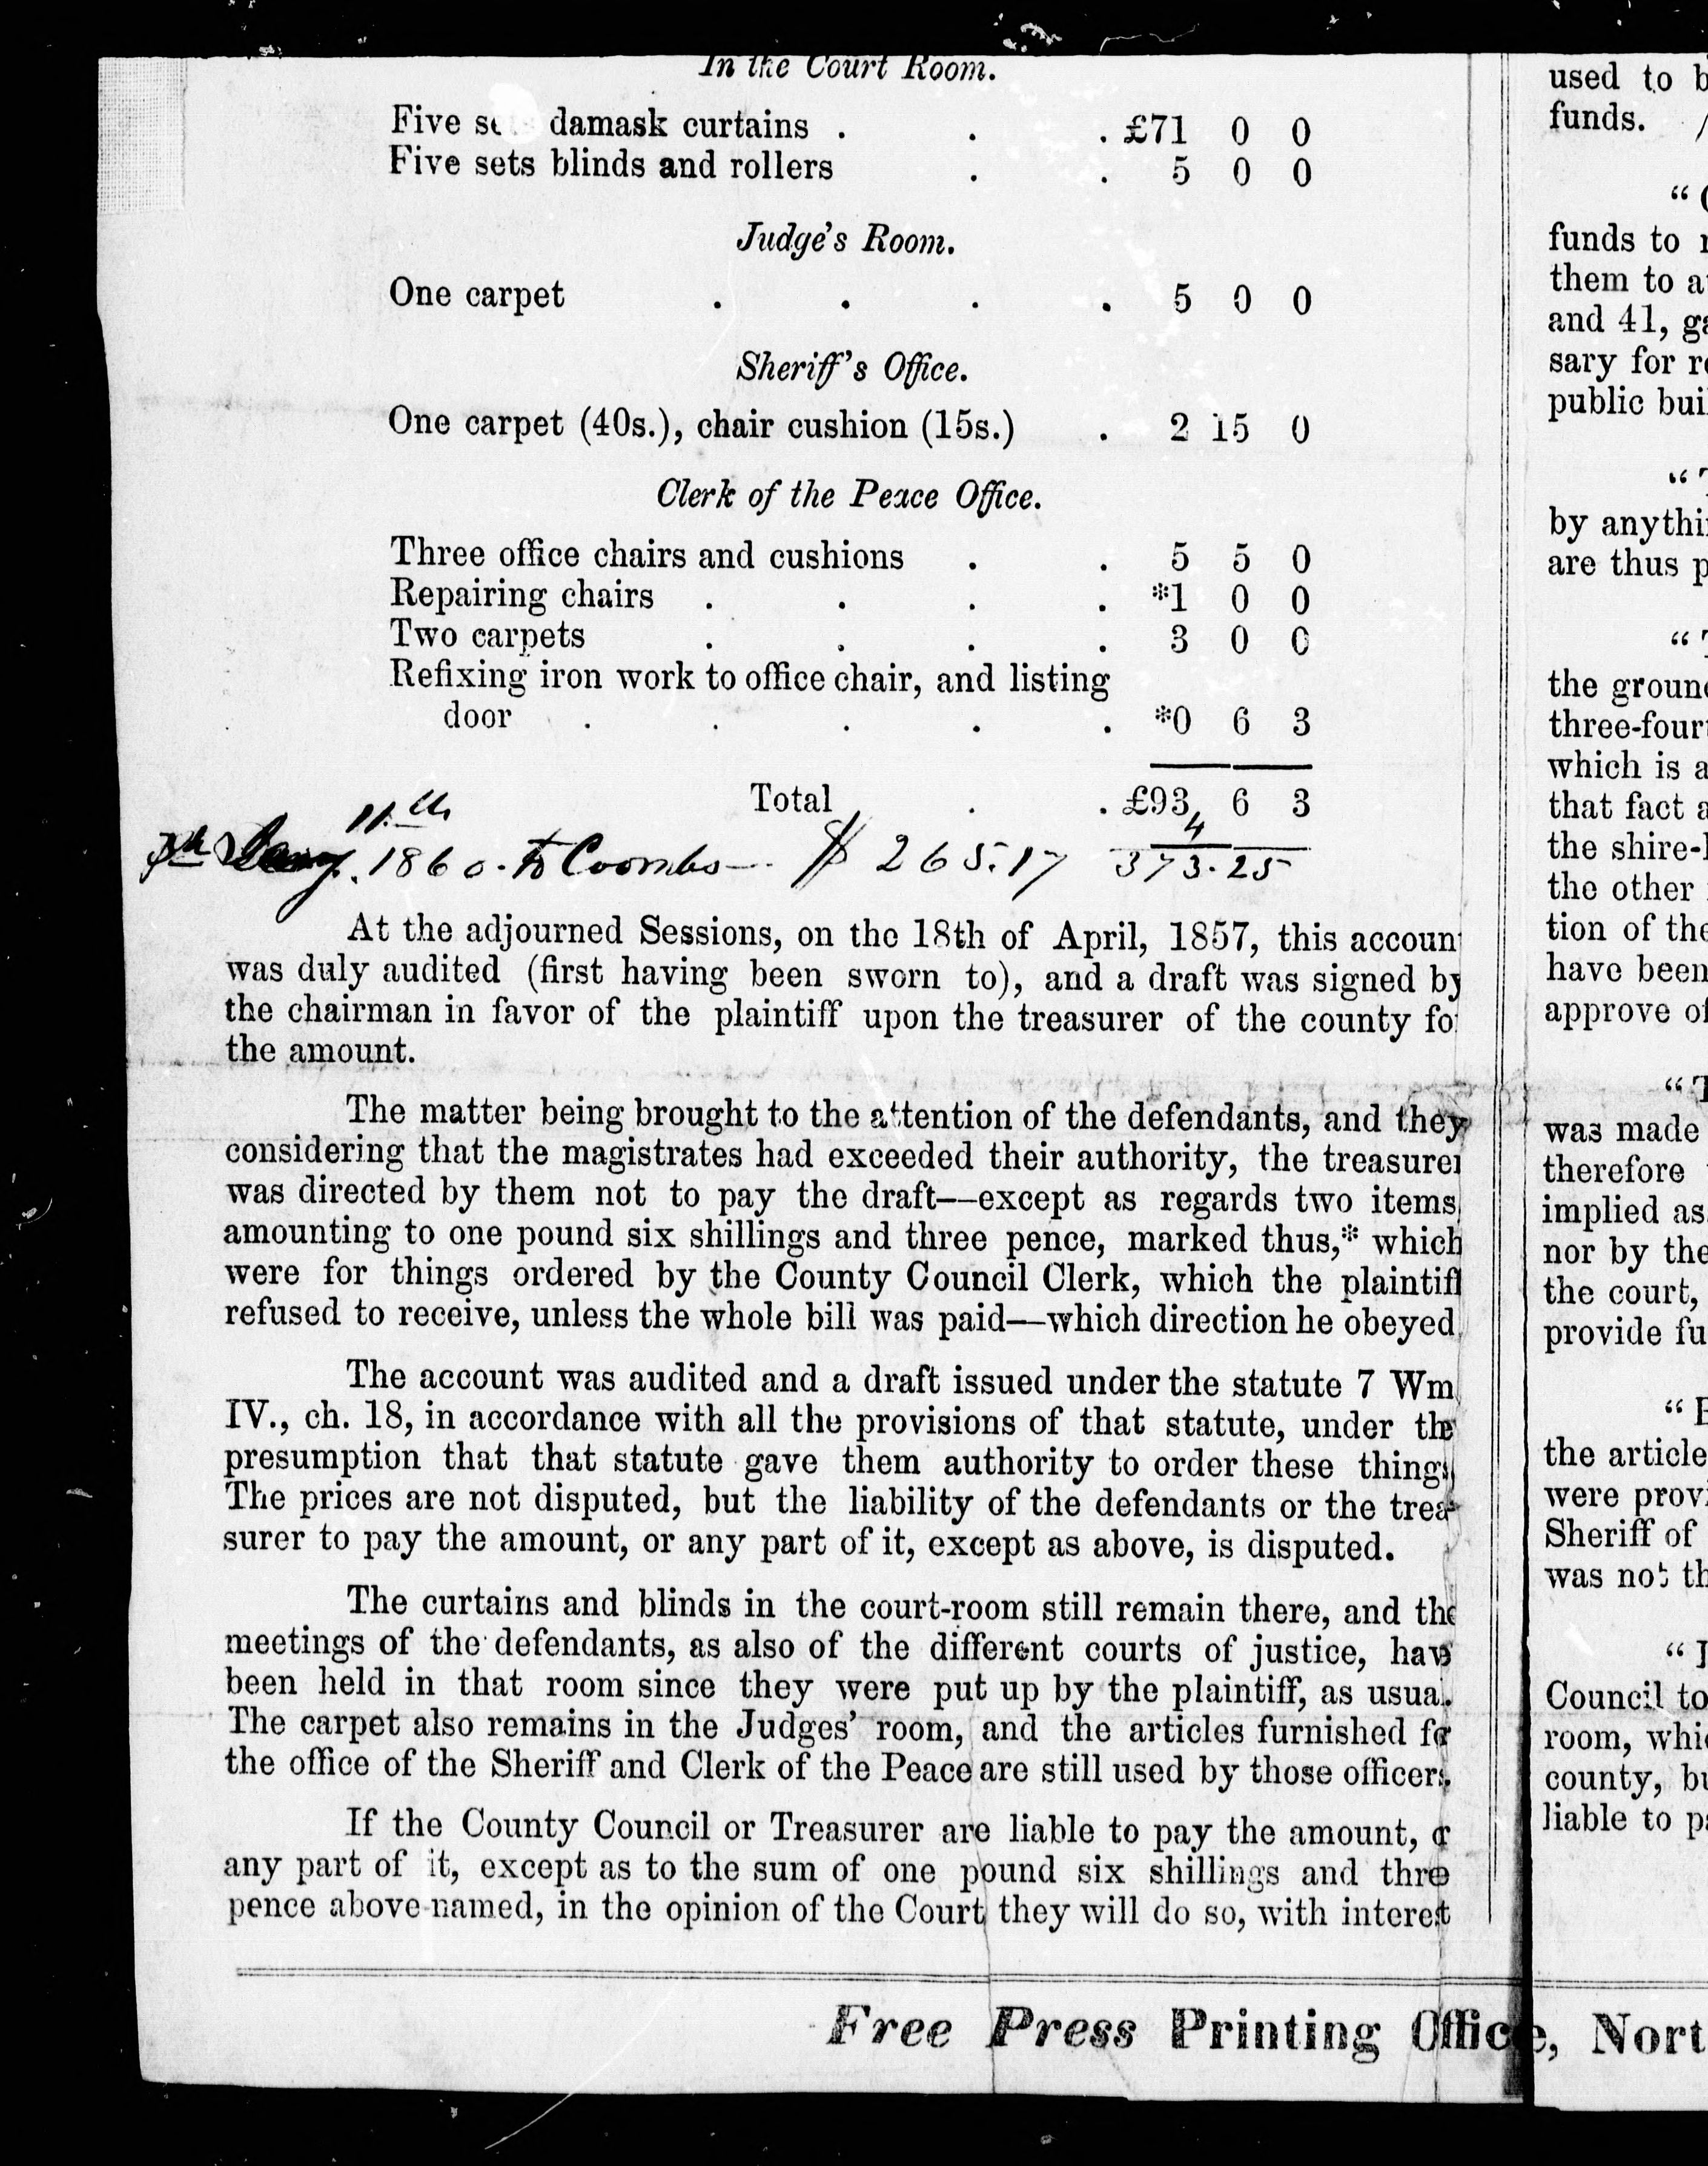 In the Court Room.
Five sets damask curtains . . . £71 0 0
Five sets blinds and rollers . . 5 0 0
Judge's Room.
One carpet . . . . 5 0 0
Sheriff's Office.
One carpet (40s.), chair cushion (15s.) . 2 15 0
Clerk of the Peace Office.
Three office chairs and cushions . . 5 5 0
Repairing chairs . . . . *1 0 0
Two carpets . . . . 3 0 0
Refixing iron work to office chair, and listing
door . . . . . *0 6 3
Total . . £93 6 3
11th 4
1860. To Coombs $ 265.17 373.25
At the adjourned Sessions, on the 18th of April, 1857, this accoun
was duly audited (first having been sworn to), and a draft was signed by
the chairman in favor of the plaintiff upon the treasurer of the county fo
the amount.
The matter being brought to the attention of the defendants, and they
considering that the magistrates had exceeded their authority, the treasurer
was directed by them not to pay the draft—except as regards two items
amounting to one pound six shillings and three pence, marked thus,* which
were for things ordered by the County Council Clerk, which the plaintiff
refused to receive, unless the whole bill was paid—which direction he obeyed
The account was audited and a draft issued under the statute 7 Wm
IV., ch. 18, in accordance with all the provisions of that statute, under the
presumption that that statute gave them authority to order these things
The prices are not disputed, but the liability of the defendants or the trea-
surer to pay the amount, or any part of it, except as above, is disputed.
The curtains and blinds in the court-room still remain there, and the
meetings of the defendants, as also of the different courts of justice, have
been held in that room since they were put up by the plaintiff, as usual.
The carpet also remains in the Judges' room, and the articles furnished for
the office of the Sheriff and Clerk of the Peace are still used by those officers.
If the County Council or Treasurer are liable to pay the amount, or
any part of it, except as to the sum of one pound six shillings and three
pence above named, in the opinion of the Court they will do so, with interest
used to b
funds.
"
funds to
them to a
and 41, ga
sary for re
public bui
"T
by anythi
are thus p
"T
the ground
three-four
which is a
that fact a
the shire-
the other
tion of the
have been
approve of
"T
was made
therefore
implied as
nor by the
the court,
provide fu
"
the article
were provi
Sheriff of
was not th
"
Council to
room, whi
county, bu
liable to pa
Free Press Printing Office, Nort